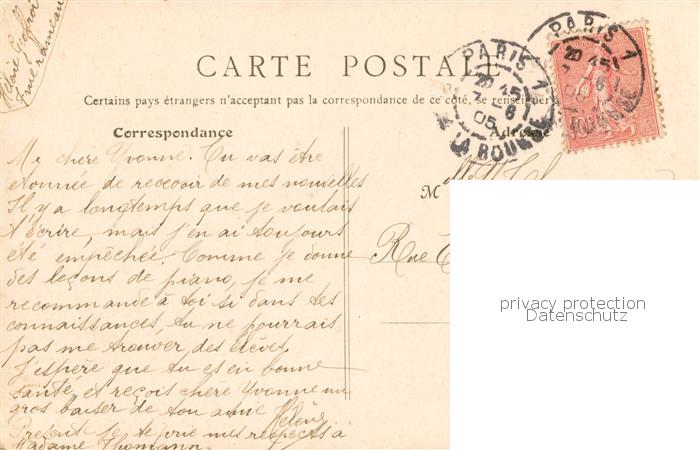 CARTE POSTALE
Certains pays étrangers n'acceptent pas la correspondance de ce côté, se renseigner
Correspondance
Adresse
PARIS 1
20 45
7 - 6
05
LA BOURSE
PARIS 1
20 45
Ma chère Yvonne. Tu vas être
étonnée de recevoir de mes nouvelles
Il y a longtemps que je voulais
t'écrire, mais j'en ai toujours
été empêchée. Comme je donne
des leçons de piano, je me
recommande à toi si dans tes
connaissances, tu ne pourrais
pas me trouver des élèves.
J'espère que tu es en bonne
santé, et reçois chère Yvonne un
gros baiser de ton amie Hélène
Présente je te prie mes respects à
Madame Thomann
M
Rue
privacy protection
Datenschutz